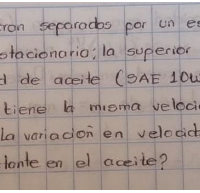 ran separados por un es
stacionario; la superior
d de aceite (SAE 10W
tiene la misma veloci
La variación en velocid
tante en el aceite?